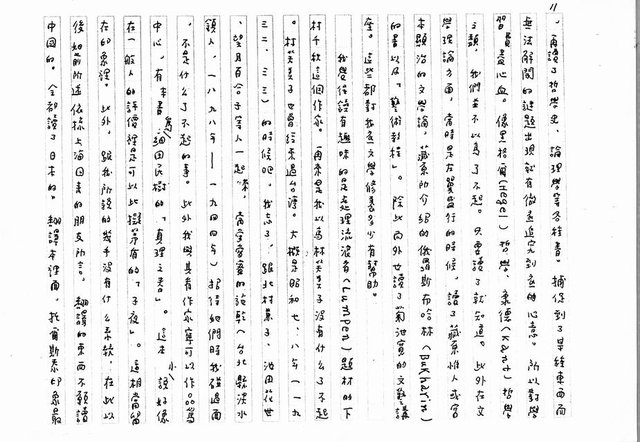 11
，再讀了哲學史、論理學等各種書。捕促到了某種東西而
無法解開的謎題出現就有做為追究到底的心意。所以對學
習費費心血。像黑格爾(Hegel)哲學、康德(Kant)哲學
之類，我們並不以為了不起。只要讀了就知道。此外在文
學理論方面，當時是左翼盛行的時候，讀了藏原惟人或宮
本顯治的文學論，藏原所介紹的俄羅斯布哈林(Bukharin)
的書以及「藝術到程」。除此而外也讀了菊池寬的文藝講
座。這些都對我底文學修養多少有幫助。
我覺得很有趣味的是處理流浪者(Lumpen)題材的下
村千秋這個作家。再來是我以為林芙美子沒有什麼了不起
。林芙美子也曾經來過台灣。大概是昭和七、八年(一九
三二、三三)的時候吧。我忘了，跟北村薰子、池田花世
、望月百合子等人一起來，
領人，一八九八年——一九四四年)招待她們時我碰過面
，不是什麼了不起的事。此外我與其看作家寧可以作品為
中心，有本書為細田民樹的「真理之春」。這本小說好像
在一般人的評價裡是可以比擬茅盾的「子夜」。這相當留
在印象裡。此外，跟我所談的幾乎沒有什麼系統，在此以
後如前所述依據上海回來的朋友所言。翻譯的東西不願讀
中國的。全部讀了日本的。翻譯本裡面，托爾斯泰印象最